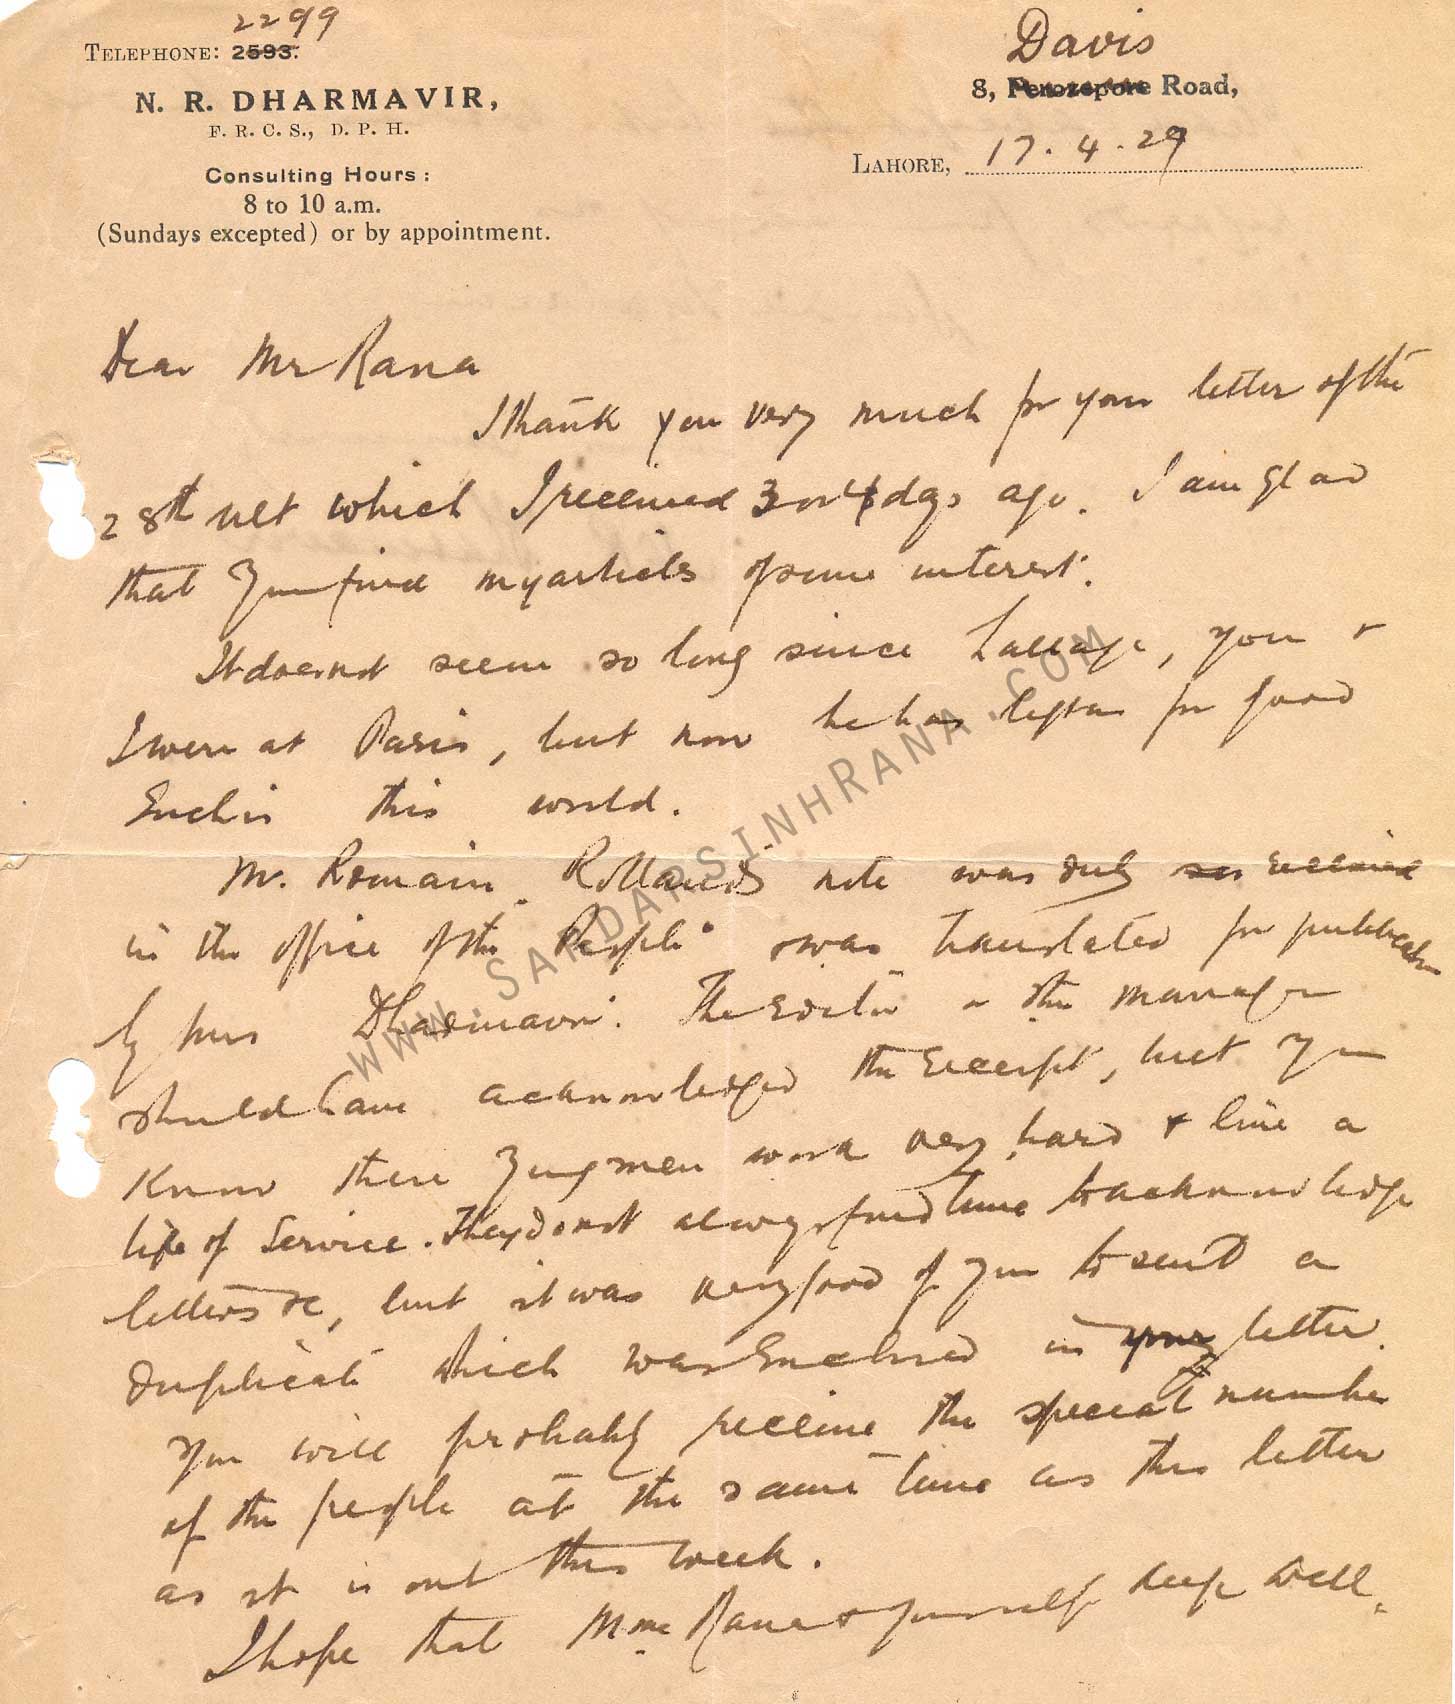 2299
TELEPHONE: 2593.
N. R. DHARMAVIR,
F. R. C. S., D. P. H.
Consulting Hours:
8 to 10 a.m.
(Sundays excepted) or by appointment.
Davis
8, Ferozepore Road,
LAHORE, 17.4.29
Dear Mr Rana
I thank you very much for your letter of the
28th ult which I received 3 or 4 days ago. I am glad
that you find my articles of some interest.
It does not seem so long since Lallaji, you +
I were at Paris, but now he has left us for good
Such is this world.
Mr. Romain Rolland's note was duly received
in the office of the "People" + was translated for publication
by Mrs Dharmavir. The Editor or the manager
should have acknowledged the receipt, but you
know these young men work very hard + live a
life of service. They do not always find time to acknowledge
letters &c, but it was very good of you to send a
duplicate which was enclosed in your letter.
You will probably receive the special number
of the people at the same time as this letter
as it is out this week.
I hope that Mme Rana + yourself keep well.
WWW.SARDARSINHRANA.COM